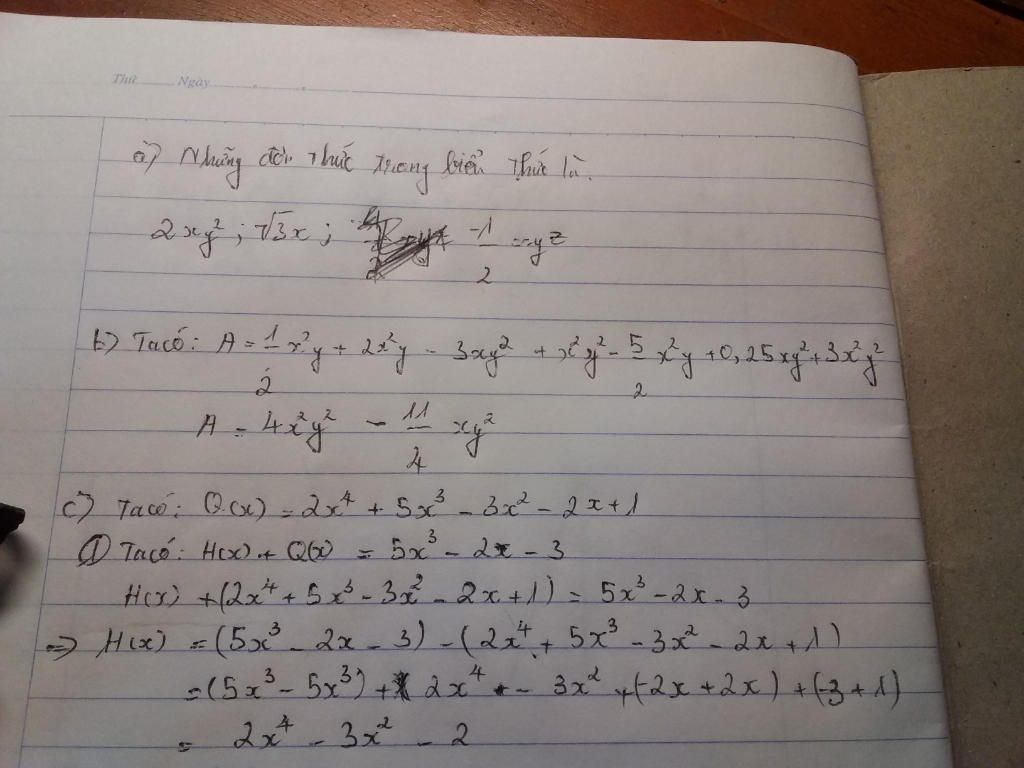 Thứ ........ Ngày ........
a) Những đơn thức trong biểu thức là:
2xy²; √3x; -1/2 yz
b) Ta có: A = 1/2 x²y + 2x²y - 3xy² + x²y² - 5/2 x²y + 0,25xy² + 3x²y²
A = 4x²y² - 11/4 xy²
c) Ta có: Q(x) = 2x⁴ + 5x³ - 3x² - 2x + 1
① Ta có: H(x) + Q(x) = 5x³ - 2x - 3
H(x) + (2x⁴ + 5x³ - 3x² - 2x + 1) = 5x³ - 2x - 3
=> H(x) = (5x³ - 2x - 3) - (2x⁴ + 5x³ - 3x² - 2x + 1)
= (5x³ - 5x³) + 2x⁴ - 3x² + (-2x + 2x) + (-3 + 1)
= 2x⁴ - 3x² - 2